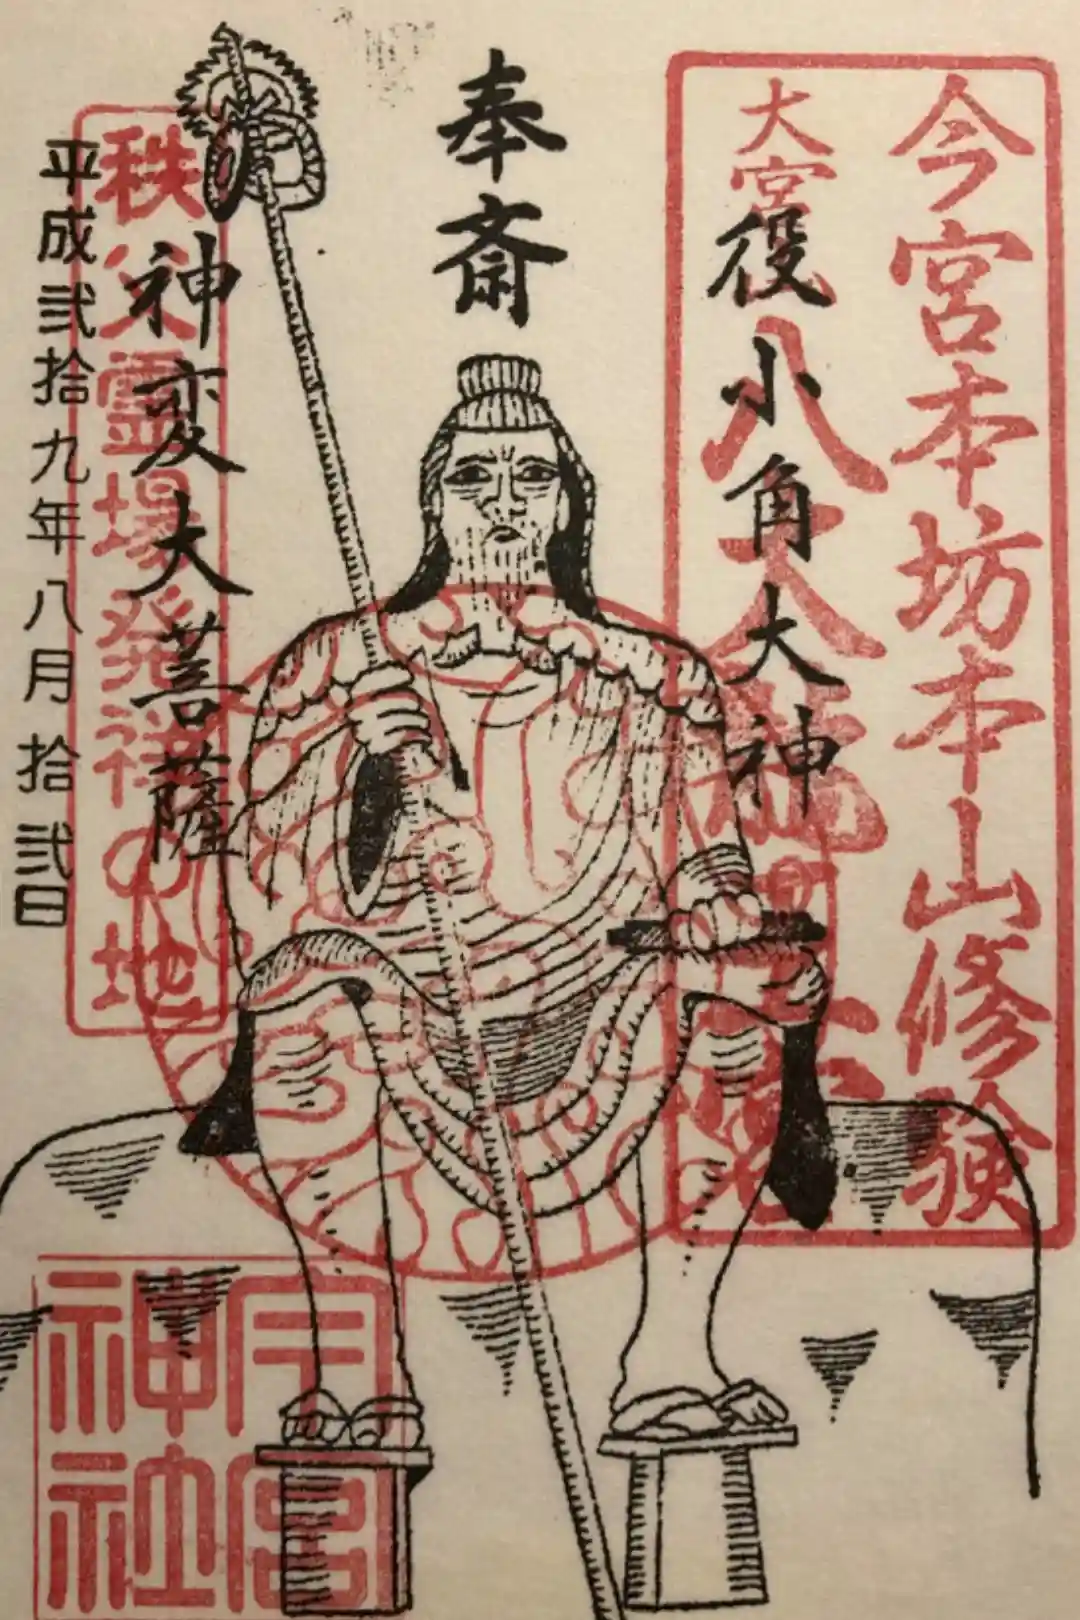 今宮本坊本山修験
大宮
八大龍
役小角大神
奉斎
神変大菩薩
秩父霊場発祥の地
平成弐拾九年八月拾弐日
今宮
神社